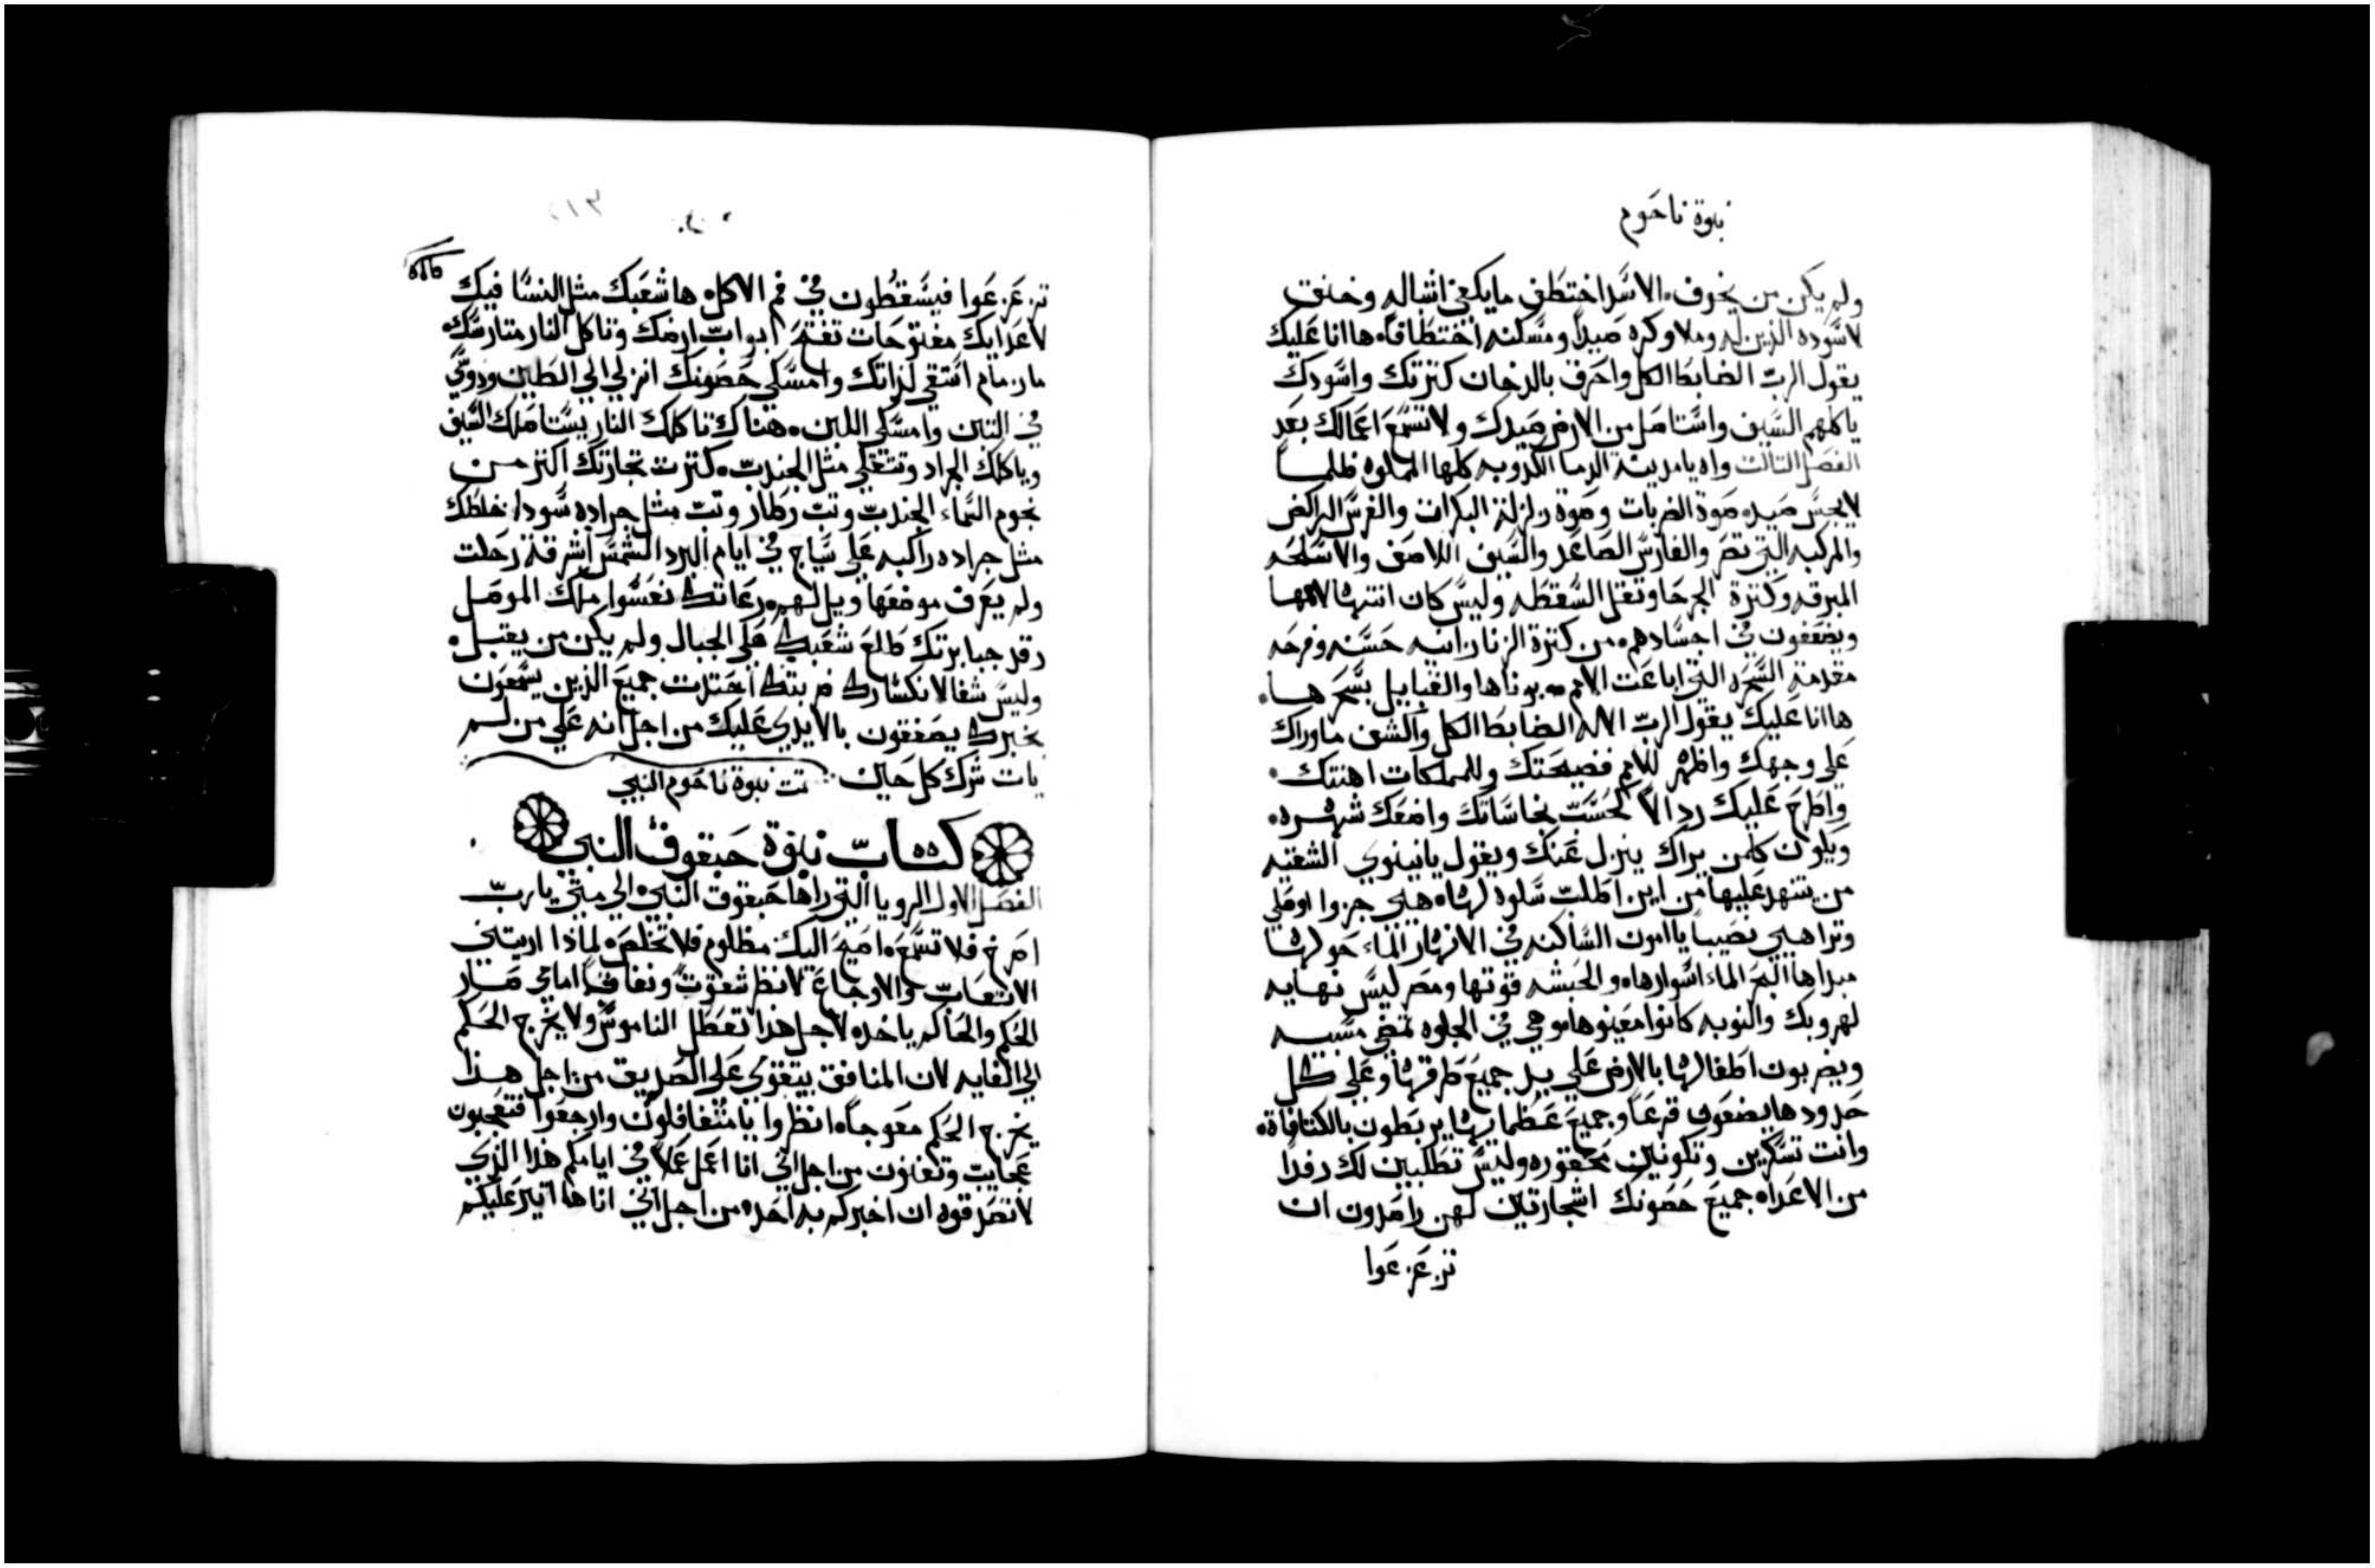 نبوة ناحوم
ولم يكن من يخوف. الاسد اختطف ما يكفي اشباله وخنق
لاسوده الذين له وملا وكره صيداً ومسكنه اختطافاً. ها انا عليك
يقول الرب الضابط الكل واحرق بالدخان كثرتك واسودك
ياكلهم السيف واستاصل من الارض صيدك ولا تسمع اعمالك بعد
الفصل الثالث واه يا مدينة الدما الكدوبه كلها المملوه ظلما
لا يجس صيد. صوة الضربات وصوة زلزلة البكرات والفرس الراكض
والمركبه التي تصر والفارس الصاعد والسيف اللاصف والاسلحه
المبرقه وكترة الجرحا وثقل السقطه وليس كان انتها لاممها
ويضعفون في اجسادهم. من كثرة الزنا زانيه حسنه وفرحه
مقدمة السحره التي اباعت الامم بزناها والقبايل بسحرها.
ها انا عليك يقول الرب الاله الضابط الكل واكشف ما وراك
علي وجهك واظهر للامم فضيحتك وللمملكات اهنتك.
واطرح عليك ردالا لحسب نجاساتك واضعك شهره.
ويكون كلمن يراك ينزل عنك ويقول يا نينوي الشقيه
من يتنهد عليها من اين اطلب سلوه لها. هيي جزوا اوصلي
وترا هيي نصيباً يا امون الساكنه في الانهار الماء حولها
مبداها البحر الماء اسوارها. والحبشه قوتها ومصر ليس نهايه
لهروبك والنوبه كانوا معينوها. وهي في الجلوه تمضي مسبيه
ويضربون اطفالها بالارض علي بد جميع طرقها وعلي كل
حدودها يضعون قرعاً وجميع عظماها يربطون بالكتافاة.
وانت تسكرين وتكونين محقوره وليس تطلبين لك رفدا
من الاعدا. جميع حصونك اشجارتين لهن راصدون ان
تزعزعوا
تزعزعوا فيسقطون في فم الاكل. ها شعبك مثل النسا فيك
لاعدايك مفتوحات تفتح ابواب ارضك وتاكل النار متارسك.
استقي لذاتك وامسكي حصونك انزلي الي الطين ودوسي
في التبن وامسكي اللبن. هناك تاكلك النار يستاصلك السيف
وياكلك الجراد وتثقلي مثل الجندب. كترت تجارتك اكتر من
نجوم السماء الجندب وثب وطار وتب مثل جراده سودا خلطك
مثل جراده راكبه علي سياج في ايام البرد الشمس اشرقة زحلت
ولم يعرف موضعها ويل لهم. رعاتك نعسوا ملك الموصل
رقد جبابرتك طلع شعبك علي الجبال ولم يكن من يقبل.
وليس شفا لانكسارك ضربتك احتدت جميع الذين يسمعون
بخبرك يصفقون بالايدي عليك من اجل انه علي من لم
يات شرك كل حين تمت نبوة ناحوم النبي
كتاب نبوة حبقوق النبي
الفصل الاول الرويا التي راها حبقوق النبي. الي متي يا رب
اصرخ فلا تسمع. اصيح اليك مظلوم فلا تخلص. لماذا اريتني
الاتعاب والاوجاع لانظر شقوت ونفاق. امامي صار
الحكم والحاكم ياخد. لاجل هذا تعطل الناموس ولا يخرج الحكم
الي الغايه لان المنافق يتقوي علي الصديق من اجل هذا
يخرج الحكم معوجاً. انظروا يا متغافلون وارجعوا فتعجبون
عجايب وتفنون من اجل اني انا اعمل عملا في ايامكم هذا الذي
لا تصدقوه ان اخبركم به احد. من اجل اني انا ها اثير عليكم